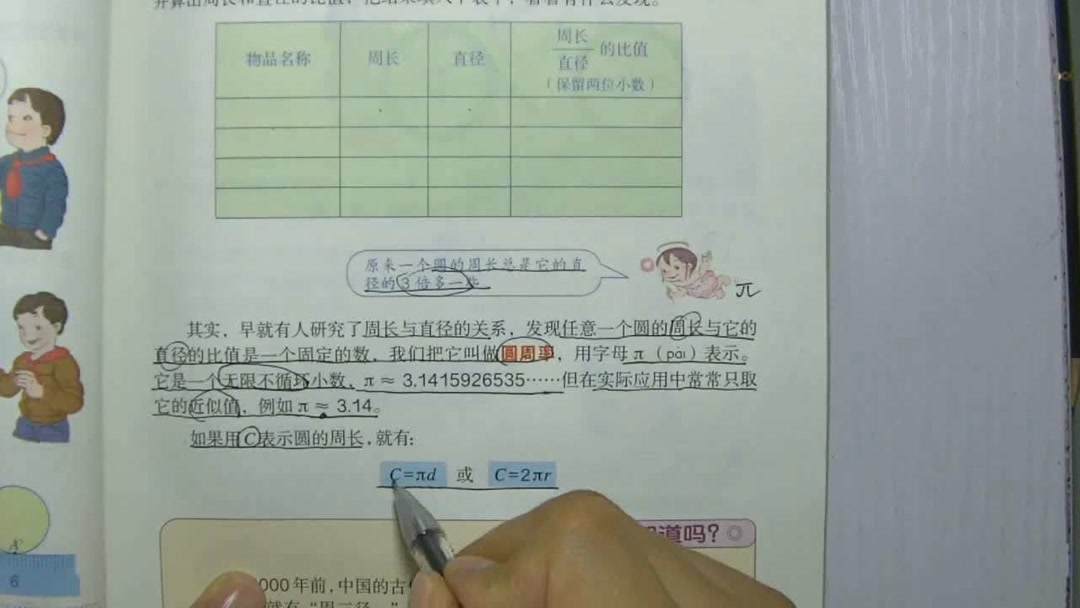 并算出周长和直径的比值,把结果填入下表中,看看有什么发现。
物品名称 周长 直径 周长
直径
的比值
(保留两位小数)
原来一个圆的周长总是它的直
径的3倍多一些。
π
其实,早就有人研究了周长与直径的关系,发现任意一个圆的周长与它的
直径的比值是一个固定的数,我们把它叫做圆周率,用字母π(pài)表示。
它是一个无限不循环小数,π≈3.1415926535……但在实际应用中常常只取
它的近似值,例如π≈3.14。
如果用C表示圆的周长,就有:
C=πd 或 C=2πr
道吗?
000年前,中国的古
就有“周三径
6